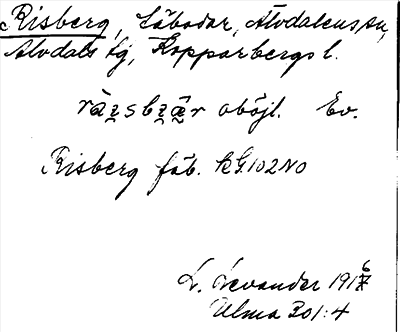 Risberg, Säbodar, Älvdalens sn,
Älvdals tg, Kopparbergs l.
oböjl. Ev.
Risberg fäb. KG102NO
L. Levander 1916
Ulma 301:4